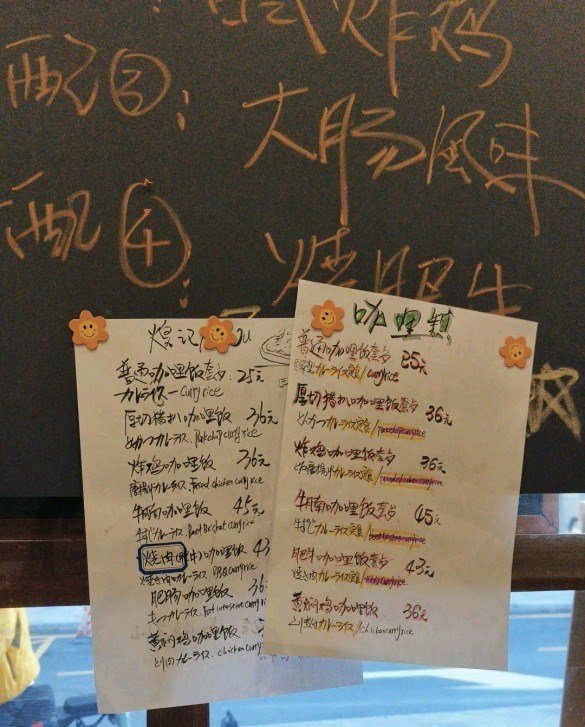 炸鸡
配③：
大肠風味
配④：
烧肥牛
煜记
普通咖哩饭套夕 25元
カレライスー curry rice
厚切猪扒咖哩饭 36元
とんかつカレーライス. Porkchop curry rice
炸鸡咖哩饭 36元
唐揚げカレーライス. Fried chicken curry rice
牛腩咖哩饭 45元
牛すじカレーライス. Beef Brisket curry rice
烧肉(肥牛)咖哩饭 43
焼き肉カレーライス. BBQ curry rice
肥肠咖哩饭 36
もつカレーライス. Pork intestine curry rice
黄焖鸡咖哩饭
とり肉カレーライス. chicken curry
咖哩類
普通咖哩饭套夕 25元
カレーライス定食/curry rice
厚切猪扒咖哩饭套夕 36元
とんかつカレーライス定食/
炸鸡咖哩饭套夕 36元
唐揚げカレーライス定食/
牛腩咖哩饭套夕 45元
牛すじカレーライス定食/
肥牛咖哩饭套夕 43元
焼き肉カレーライス定食/
黄焖鸡咖哩饭 36元
とり肉カレーライス/chicken curry rice